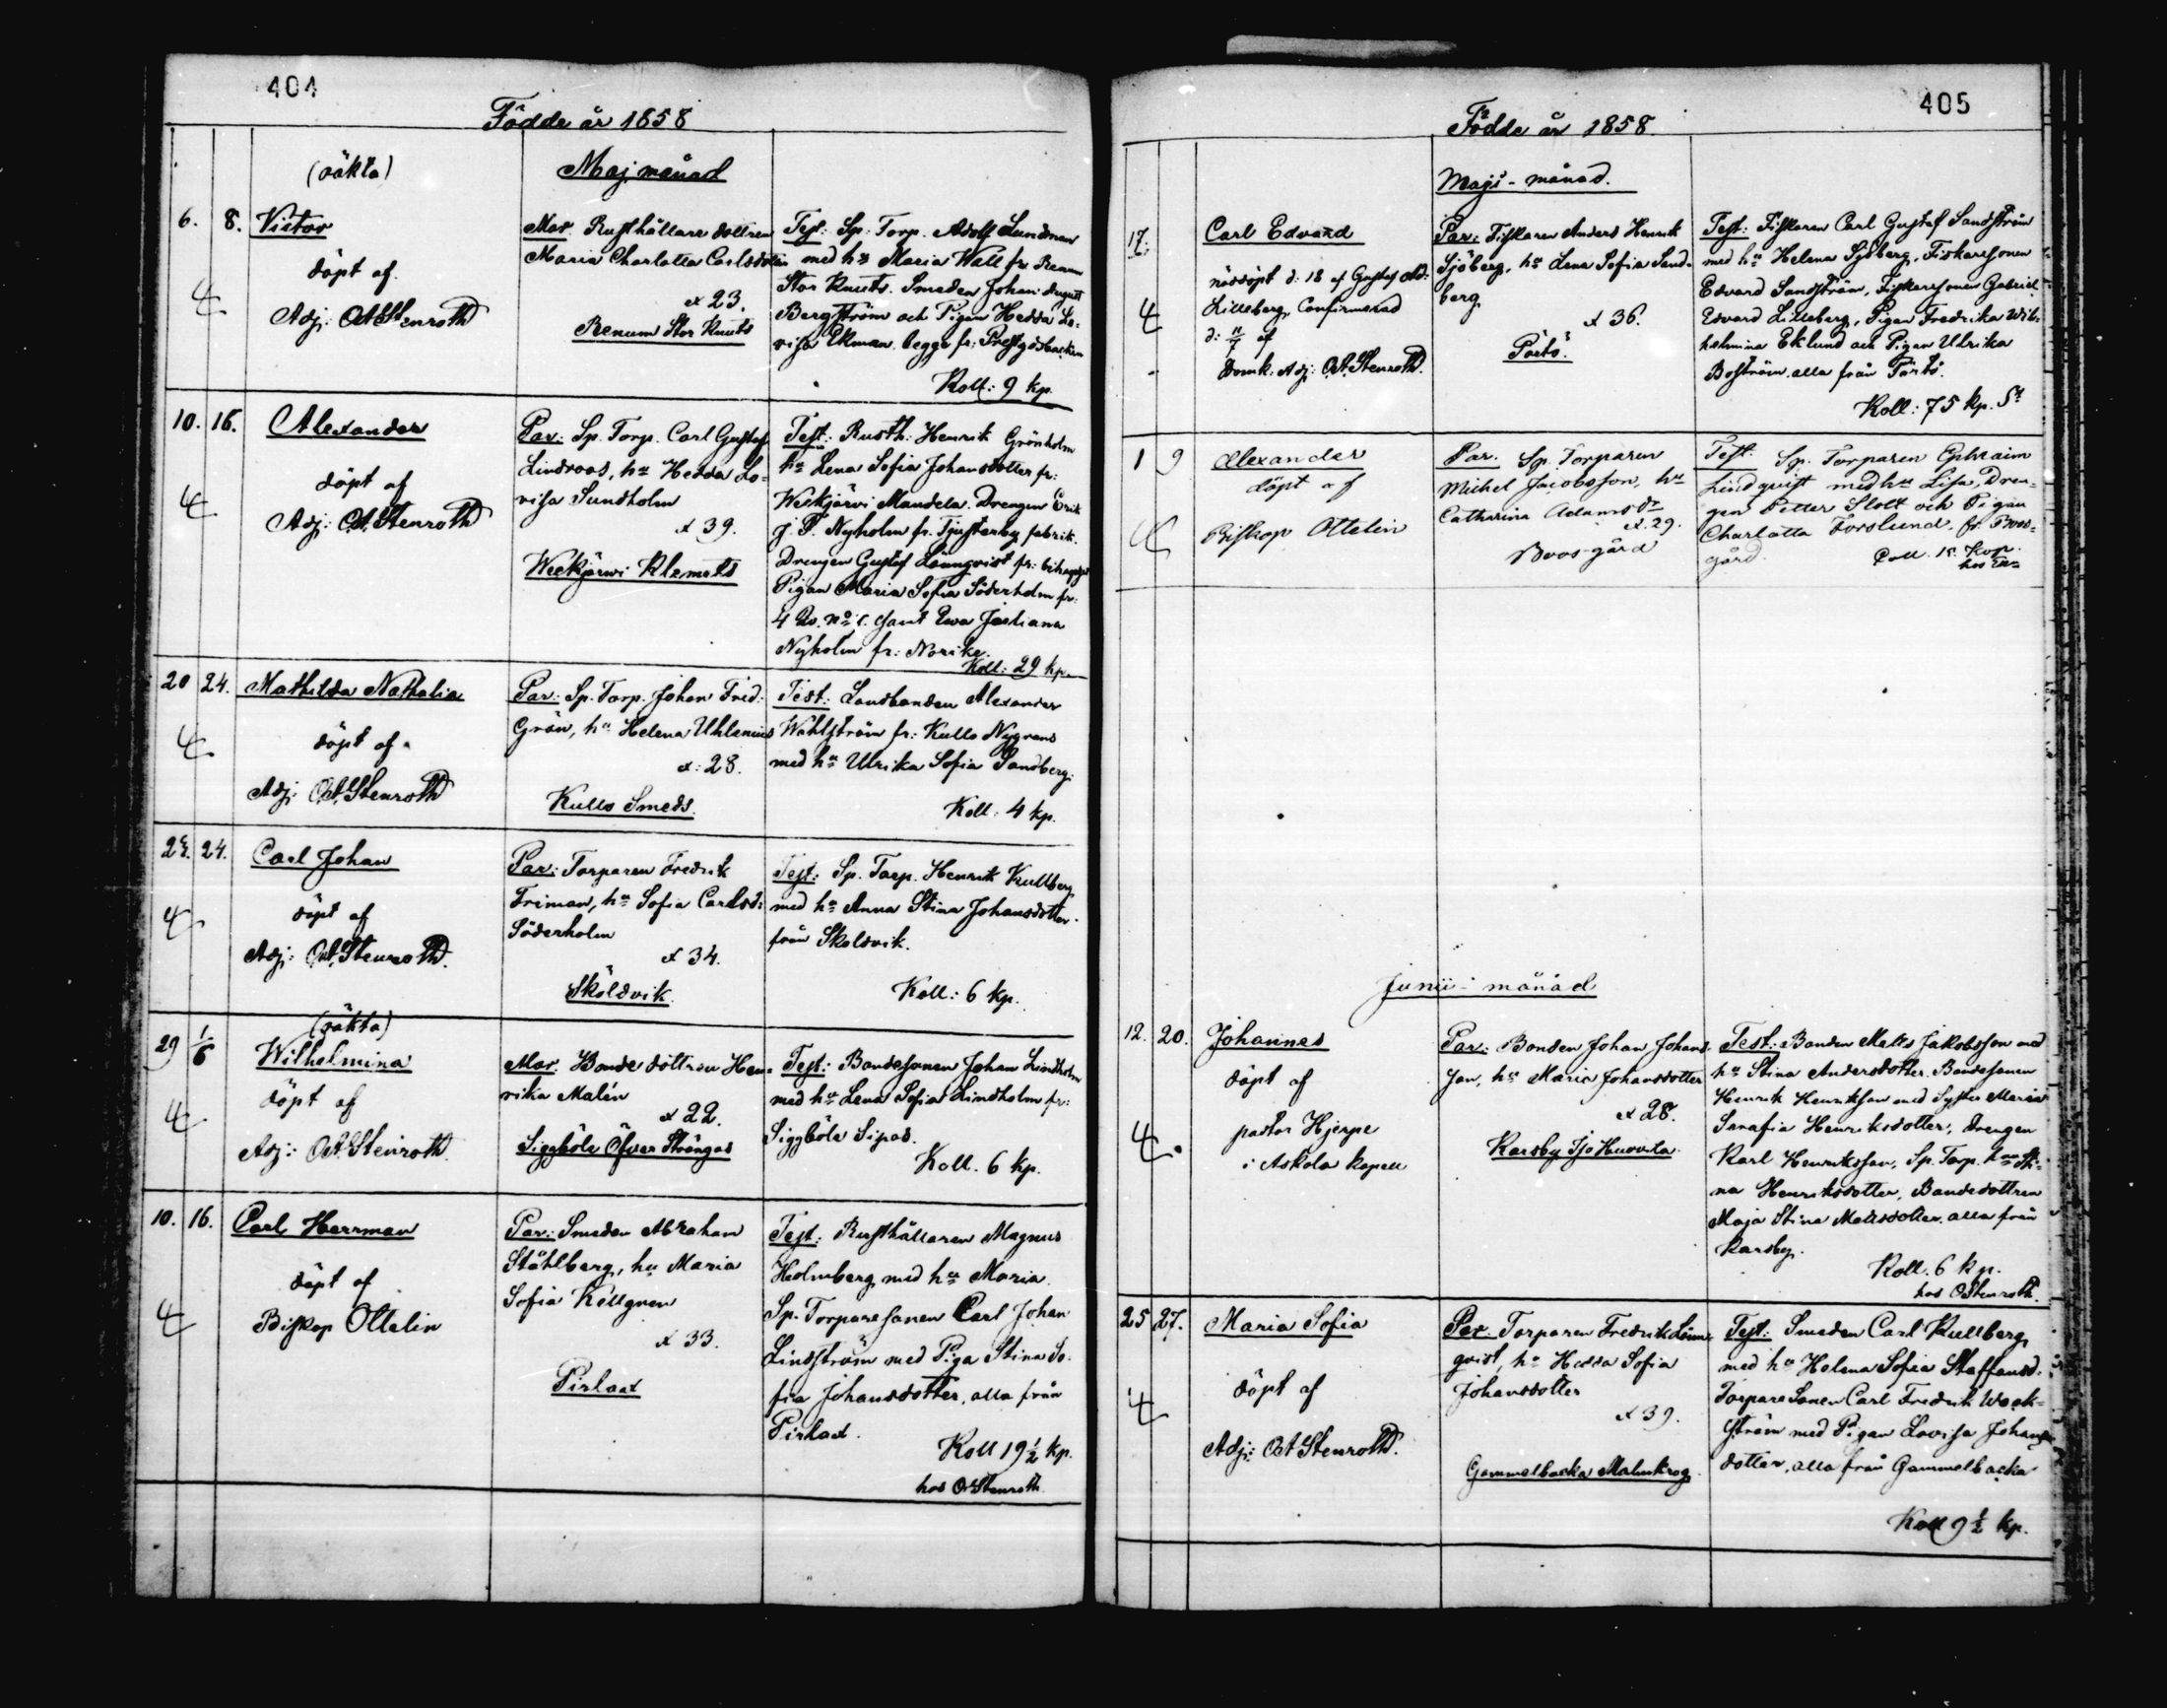 404
Födde år 1858
Maj månad
(oäkta)
6. 8. Victor
döpt af
Adj: O.A. Stenroth
Mor. Rusthållare dottren
Maria Charlotta Carlsdotter
x 23.
Renum Stor Knuts
Test: Sp. Torp. Adolf Lundman
med hu Maria Wall fr. Renum
Stor Knuts. Smeden Johan August
Bergström och Pigan Hedda Lo-
visa Ekman begge fr: Prestgdsbacken
Koll: 9 kp.
10. 16. Alexander
döpt af
Adj: O.A. Stenroth
Par: Sp. Torp. Carl Gustaf
Lindroos, hu Hedda Lo-
visa Sundholm
x 39.
Weckjärvi Klemets
Test: Rusth: Henrik Grönholm
hu Lena Sofia Johansdotter fr:
Weckjärvi Mandels. Drengen Erik
J. F. Nyholm fr. Tjusterby fabrik.
Drengen Gustaf Lönnqvist fr:
Pigan Maria Sofia Söderholm fr:
4 Qv. No samt Ewa Justiana
Nyholm fr: Norike.
Koll: 29 kp.
20 24. Mathilda Nathalia
döpt af
Adj: O.A. Stenroth
Par: Sp. Torp. Johan Fred:
Grön, hu Helena Uhlenius
x: 28.
Kullo Smeds.
Test: Landbonden Alexander
Wahlström fr: Kullo Nygrens
med hu Ulrika Sofia Sandberg.
Koll: 4 kp.
24. Carl Johan
döpt af
Adj: O.A. Stenroth.
Par: Torparen Fredrik
Friman, hu Sofia Carlsd:
Söderholm
x 34.
Sköldvik.
Test: Sp. Torp. Henrik Kullberg
med hu Anna Stina Johansdotter
från Sköldvik.
Koll: 6 kp.
(oäkta)
29 1/6 Wilhelmina
döpt af
Adj: O.A. Stenroth
Mor. Bonde dottren Hen-
rika Malén
x 22.
Siggböle Öfver Strångas
Test: Bondesonen Johan Lindholm
med hu Lena Sofia Lindholm fr:
Siggböle Sipas.
Koll. 6 kp.
10. 16. Carl Herrman
döpt af
Biskop Ottelin
Par: Smeden Abraham
Ståhlberg, hu Maria
Sofia Källgren
x 33.
Pirlax
Test: Rusthållaren Magnus
Holmberg med hu Maria.
Sp. Torparesonen Carl Johan
Lindström med Piga Stina So-
fia Johansdotter, alla från
Pirlax.
Koll 19 1/2 kp.
hos O.A. Stenroth
405
Födde år 1858.
Maji-månad.
17. Carl Edvard
nöddöpt d: 18 af Gustaf Ad:
Lilleberg, Confirmerad
d: 11/7 af
Domk. Adj: O.A. Stenroth.
Par: Fiskaren Anders Henrik
Sjöberg, hu Lena Sofia Sand-
berg.
x 36.
Pörtö.
Test: Fiskaren Carl Gustaf Sandström
med hu Helena Sjöberg, Fiskaresonen
Edvard Sandström, Fiskaresonen Gabriel
Edvard Lilleberg, Pigan Fredrika Wil-
helmina Eklund och Pigan Ulrika
Boström, alla från Pörtö.
Koll: 75 kp. St
1 9 Alexander
döpt af
Biskop Ottelin
Par. Sp. Torparen
Michel Jacobsson, hu
Catharina Adamsdr
x 29.
Boosgård
Test. Sp. Torparen Ephraim
Lindqvist med hu Lisa, Dren-
gen Petter Slott och Pigan
Charlotta Forslund, fr. Boos-
gård
Coll. 15. Kop.
Junii-månad
12. 20. Johannes
döpt af
pastor Hjerpe
i Askola kapell
Par: Bonden Johan Johans-
son, hu Maria Johansdotter
x 28.
Karsby Isohuovila
Test: Bonden Matts Jakobsson med
hu Stina Andersdotter. Bondesonen
Henrik Henriksson med Syster Maria
Serafia Henriksdotter, Drengen
Karl Henriksson, Sp. Torp. hu Sti-
na Henriksdotter, Bondedottren
Maja Stina Mattsdotter. alla från
Karsby.
Koll. 6 kp.
hos O.A. Stenroth.
25 27. Maria Sofia
döpt af
Adj: O.A. Stenroth.
Par. Torparen Fredrik Lönn-
qvist, hu Hedda Sofia
Johansdotter
x 39.
Gammelbacka Malmkrog
Test: Smeden Carl Kullberg,
med hu Helena Sofia Staffansd.
Torpare Sonen Carl Fredrik Weck-
ström med Pigan Lovisa Johans-
dotter, alla från Gammelbacka
Koll 9 1/2 kp.